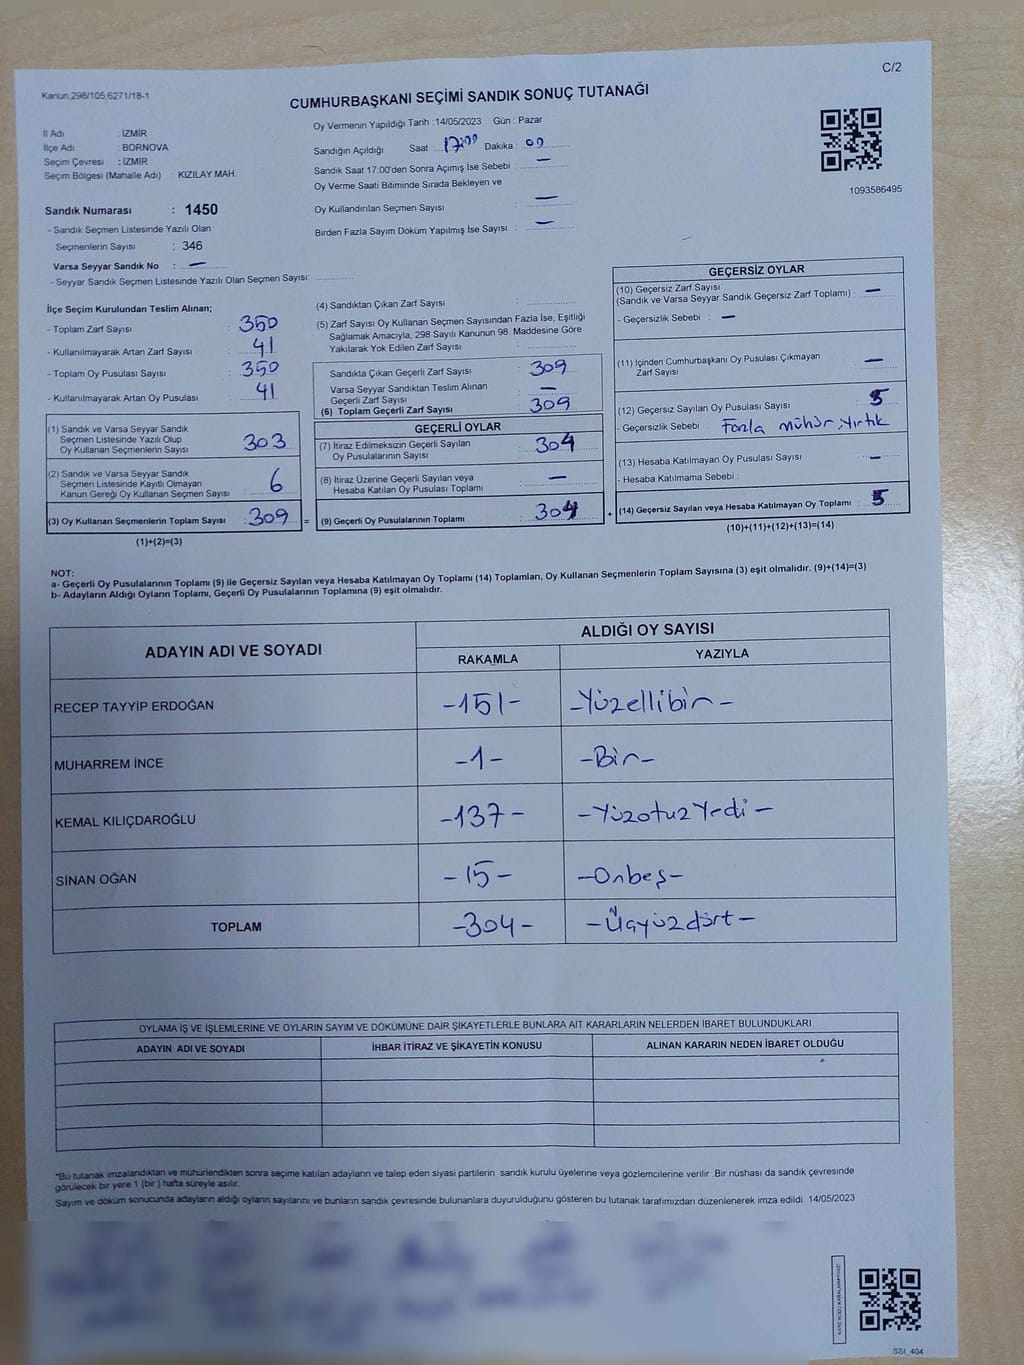 C/2
Kanun,298/105,6271/18-1
CUMHURBAŞKANI SEÇİMİ SANDIK SONUÇ TUTANAĞI
Oy Vermenin Yapıldığı Tarih :14/05/2023 Gün : Pazar
İl Adı : İZMİR
İlçe Adı : BORNOVA
Seçim Çevresi : İZMİR
Seçim Bölgesi (Mahalle Adı) : KIZILAY MAH.
Sandığın Açıldığı Saat : 17:00 Dakika : 00
Sandık Saat 17:00'den Sonra Açımış İse Sebebi : —
Oy Verme Saati Bitiminde Sırada Bekleyen ve
Oy Kullandırılan Seçmen Sayısı : —
Birden Fazla Sayım Döküm Yapılmış İse Sayısı : —
1093586495
Sandık Numarası : 1450
- Sandık Seçmen Listesinde Yazılı Olan
Seçmenlerin Sayısı : 346
Varsa Seyyar Sandık No : —
- Seyyar Sandık Seçmen Listesinde Yazılı Olan Seçmen Sayısı:
İlçe Seçim Kurulundan Teslim Alınan;
- Toplam Zarf Sayısı : 350
- Kullanılmayarak Artan Zarf Sayısı : 41
- Toplam Oy Pusulası Sayısı : 350
- Kullanılmayarak Artan Oy Pusulası : 41
(1) Sandık ve Varsa Seyyar Sandık
Seçmen Listesinde Yazılı Olup
Oy Kullanan Seçmenlerin Sayısı : 303
(2) Sandık ve Varsa Seyyar Sandık
Seçmen Listesinde Kayıtlı Olmayan
Kanun Gereği Oy Kullanan Seçmen Sayısı : 6
(3) Oy Kullanan Seçmenlerin Toplam Sayısı : 309
(1)+(2)=(3)
=
(4) Sandıktan Çıkan Zarf Sayısı :
(5) Zarf Sayısı Oy Kullanan Seçmen Sayısından Fazla İse, Eşitliği
Sağlamak Amacıyla, 298 Sayılı Kanunun 98. Maddesine Göre
Yakılarak Yok Edilen Zarf Sayısı :
Sandıkta Çıkan Geçerli Zarf Sayısı : 309
Varsa Seyyar Sandıktan Teslim Alınan
Geçerli Zarf Sayısı : —
(6) Toplam Geçerli Zarf Sayısı : 309
GEÇERLİ OYLAR
(7) İtiraz Edilmeksizin Geçerli Sayılan
Oy Pusulalarının Sayısı : 304
(8) İtiraz Üzerine Geçerli Sayılan veya
Hesaba Katılan Oy Pusulası Toplamı : —
(9) Geçerli Oy Pusulalarının Toplamı : 304
+
GEÇERSİZ OYLAR
(10) Geçersiz Zarf Sayısı
(Sandık ve Varsa Seyyar Sandık Geçersiz Zarf Toplamı) : —
- Geçersizlik Sebebi : —
(11) İçinden Cumhurbaşkanı Oy Pusulası Çıkmayan
Zarf Sayısı : —
(12) Geçersiz Sayılan Oy Pusulası Sayısı : 5
- Geçersizlik Sebebi : Fazla mühür, yırtık
(13) Hesaba Katılmayan Oy Pusulası Sayısı : —
- Hesaba Katılmama Sebebi :
(14) Geçersiz Sayılan veya Hesaba Katılmayan Oy Toplamı : 5
(10)+(11)+(12)+(13)=(14)
NOT:
a- Geçerli Oy Pusulalarının Toplamı (9) ile Geçersiz Sayılan veya Hesaba Katılmayan Oy Toplamı (14) Toplamları, Oy Kullanan Seçmenlerin Toplam Sayısına (3) eşit olmalıdır. (9)+(14)=(3)
b- Adayların Aldığı Oyların Toplamı, Geçerli Oy Pusulalarının Toplamına (9) eşit olmalıdır.
ADAYIN ADI VE SOYADI ALDIĞI OY SAYISI
RAKAMLA YAZIYLA
RECEP TAYYİP ERDOĞAN -151- -Yüzellibir-
MUHARREM İNCE -1- -Bir-
KEMAL KILIÇDAROĞLU -137- -Yüzotuzyedi-
SİNAN OĞAN -15- -Onbeş-
TOPLAM -304- -Üçyüzdört-
OYLAMA İŞ VE İŞLEMLERİNE VE OYLARIN SAYIM VE DÖKÜMÜNE DAİR ŞİKAYETLERLE BUNLARA AİT KARARLARIN NELERDEN İBARET BULUNDUKLARI
ADAYIN ADI VE SOYADI İHBAR İTİRAZ VE ŞİKAYETİN KONUSU ALINAN KARARIN NEDEN İBARET OLDUĞU
*Bu tutanak imzalandıktan ve mühürlendikten sonra seçime katılan adayların ve talep eden siyasi partilerin sandık kurulu üyelerine veya gözlemcilerine verilir .Bir nüshası da sandık çevresinde
görülecek bir yere 1 (bir ) hafta süreyle asılır.
Sayım ve döküm sonucunda adayların aldığı oyların sayılarını ve bunların sandık çevresinde bulunanlara duyurulduğunu gösteren bu tutanak tarafımızdan düzenlenerek imza edildi. 14/05/2023
SSI_404